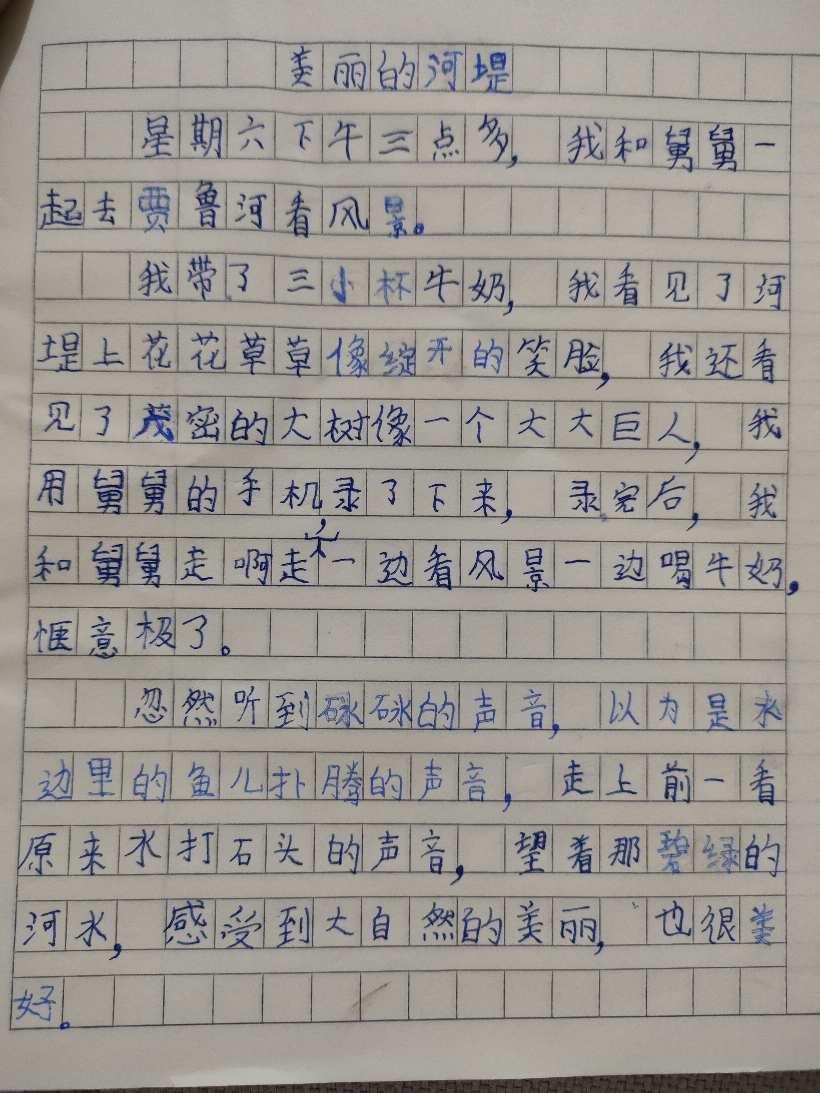 美丽的河堤
星期六下午三点多，我和舅舅一
起去贾鲁河看风景。
我带了三小杯牛奶，我看见了河
堤上花花草草像绽开的笑脸，我还看
见了茂密的大树像一个大大巨人，我
用舅舅的手机录了下来，录完后，我
和舅舅走啊走，一边看风景一边喝牛奶，
惬意极了。
忽然听到的声音，以为是水
边里的鱼儿扑腾的声音，走上前一看
原来水打石头的声音，望着那碧绿的
河水，感受到大自然的美丽，也很美
好。